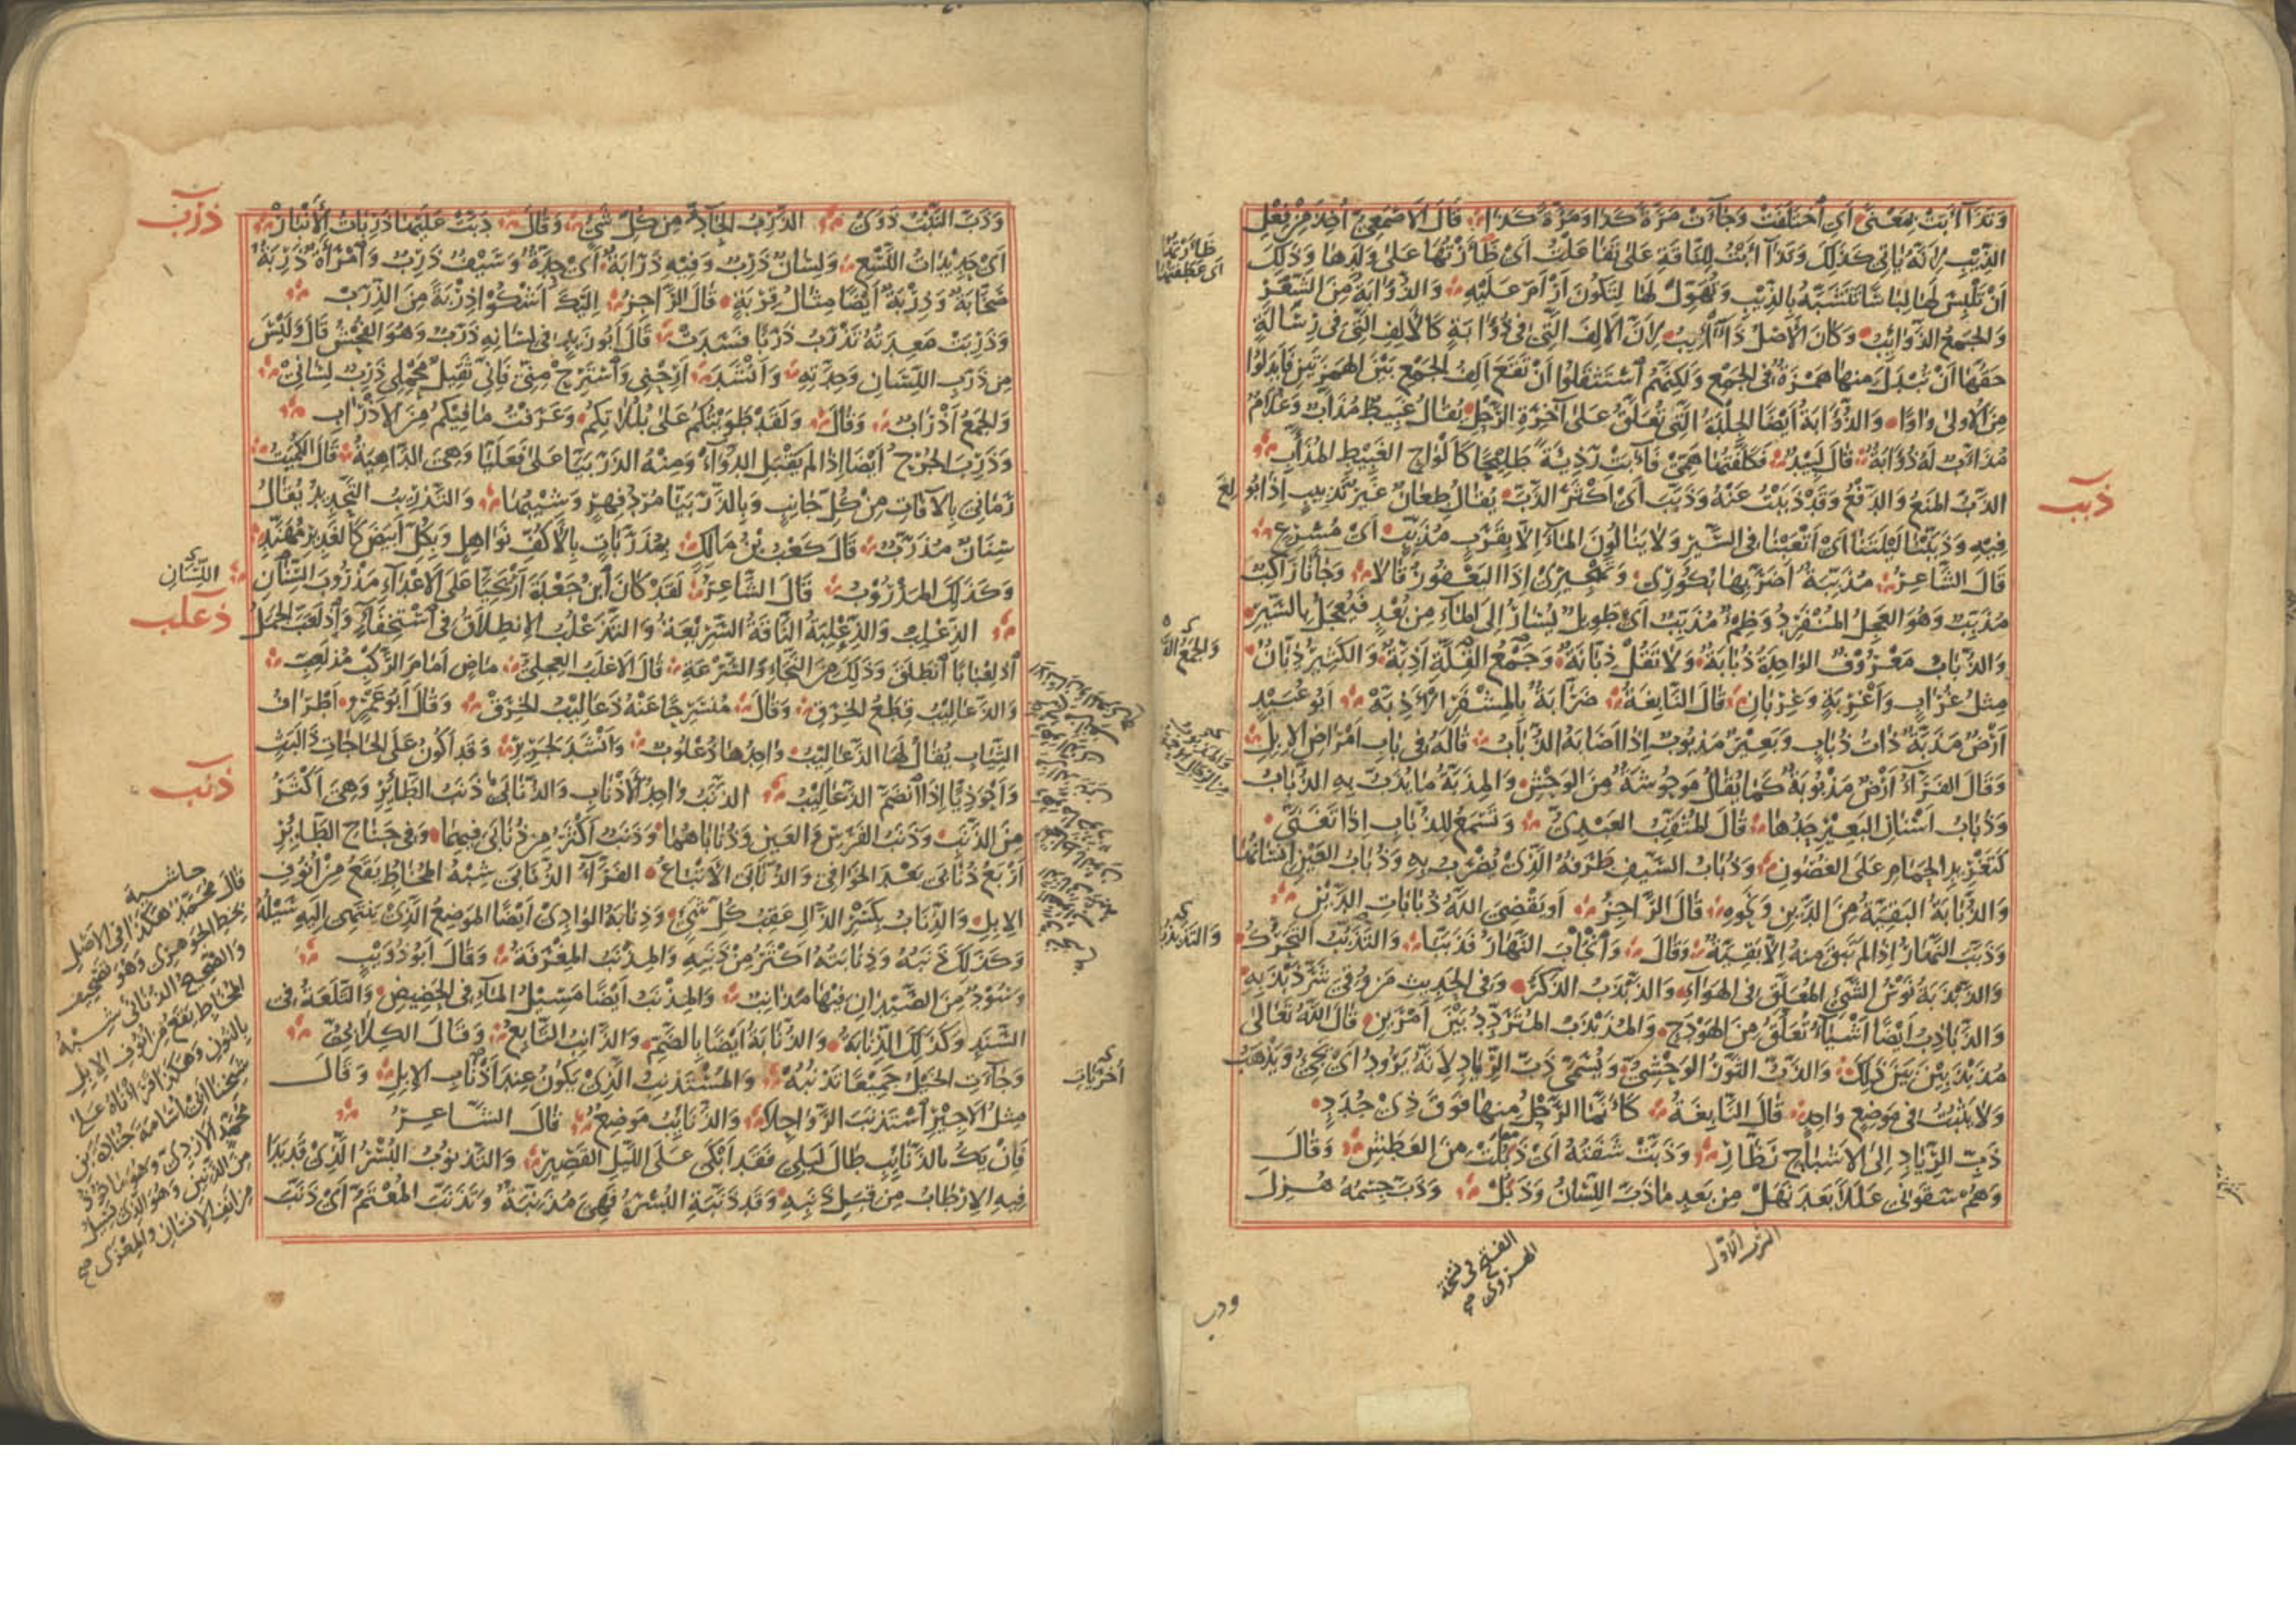 وَتَذَاءَبَتْ بِمَعْنًى أَيِ اخْتَلَفَتْ وَجَاءَتْ مَرَّةً كَذَا وَمَرَّةً كَذَا قَالَ الْأَصْمَعِيُّ أُخِذَ مِنْ فِعْلِ
الذِّئْبِ لِأَنَّهُ يَأْتِي كَذَلِكَ وَتَذَاءَبْتُ لِلنَّاقَةِ عَلَى تَفَاعَلْتُ أَيْ ظَأَرْتُهَا عَلَى وَلَدِهَا وَذَلِكَ
أَنْ تَلْبَسَ لَهَا لِبَاسًا تَتَشَبَّهُ بِالذِّئْبِ وَتُهَوِّلُ لَهَا لِتَكُونَ أَرْأَمَ عَلَيْهِ وَالذُّؤَابَةُ مِنَ الشَّعَرِ
وَالْجَمْعُ الذَّوَائِبُ وَكَانَ الْأَصْلُ ذَآئِبُ لِأَنَّ الْأَلِفَ الَّتِي فِي ذُؤَابَةٍ كَالْأَلِفِ الَّتِي فِي رِسَالَةٍ
حَقُّهَا أَنْ تُبْدَلَ مِنْهَا هَمْزَةٌ فِي الْجَمْعِ وَلَكِنَّهُمُ اسْتَثْقَلُوا أَنْ تَقَعَ أَلِفُ الْجَمْعِ بَيْنَ الْهَمْزَتَيْنِ فَأَبْدَلُوا
مِنَ الْأُولَى وَاوًا وَالذُّؤَابَةُ أَيْضًا الْجِلْدَةُ الَّتِي تُعَلَّقُ عَلَى آخِرَةِ الرَّحْلِ يُقَالُ غَبِيطٌ مُذَأَّبٌ وَغُلَامٌ
مُذَأَّبٌ لَهُ ذُؤَابَةٌ قَالَ لَبِيدٌ فَكَلَّفْتُهَا هَمِّي فَآبَتْ رَذِيَّةً طَلِيحًا كَأَلْوَاحِ الْغَبِيطِ الْمُذَأَّبِ
ذبب
الذَّبُّ الْمَنْعُ وَالدَّفْعُ وَقَدْ ذَبَبْتُ عَنْهُ وَذَبَّبَ أَيْ أَكْثَرَ الذَّبَّ يُقَالُ طِعَانٌ غَيْرُ تَذْبِيبٍ إِذَا بُولِغَ
فِيهِ وَذَبَّبْنَا لَيْلَتَنَا أَيْ أَتْعَبْنَا فِي السَّيْرِ وَلَا يَنَالُونَ الْمَاءَ إِلَّا بِقَرَبٍ مُذَبِّبٍ أَيْ مُسْرِعٍ
قَالَ الشَّاعِرُ مُذَبِّبَةٌ أَضَرَّ بِهَا بُكُورِي وَتَهْجِيرِي إِذَا الْيَعْفُورُ قَالَا وَجَاءَنَا رَاكِبٌ
مُذَبِّبٌ وَهُوَ الْعَجِلُ الْمُنْفَرِدُ وَظِمْءٌ مُذَبِّبٌ أَيْ طَوِيلٌ يُسَارُ إِلَى الْمَاءِ مِنْ بُعْدٍ فَيُعْجَلُ بِالسَّيْرِ
وَالذُّبَابُ مَعْرُوفٌ الْوَاحِدَةُ ذُبَابَةٌ وَلَا تَقُلْ ذِبَّانَةٌ وَجَمْعُ الْقِلَّةِ أَذِبَّةٌ وَالْكَثِيرُ ذِبَّانٌ
مِثْلُ غُرَابٍ وَأَغْرِبَةٍ وَغِرْبَانٍ قَالَ النَّابِغَةُ ضَرَّابَةٌ بِالْمِشْفَرِ الْأَذِبَّهْ أَبُو عُبَيْدٍ
أَرْضٌ مَذَبَّةٌ ذَاتُ ذُبَابٍ وَبَعِيرٌ مَذْبُوبٌ إِذَا أَصَابَهُ الذُّبَابُ قَالَهُ فِي بَابِ أَمْرَاضِ الْإِبِلِ
وَقَالَ الْفَرَّاءُ أَرْضٌ مَذْبُوبَةٌ كَمَا يُقَالُ مَوْحُوشَةٌ مِنَ الْوَحْشِ وَالْمِذَبَّةُ مَا يُذَبُّ بِهِ الذُّبَابُ
وَذُبَابُ أَسْنَانِ الْبَعِيرِ حَدُّهَا قَالَ الْمُثَقِّبُ الْعَبْدِيُّ وَتَسْمَعُ لِلذُّبَابِ إِذَا تَغَنَّى
كَتَغْرِيدِ الْحَمَامِ عَلَى الْغُصُونِ وَذُبَابُ السَّيْفِ طَرَفُهُ الَّذِي يُضْرَبُ بِهِ وَذُبَابُ الْعَيْنِ إِنْسَانُهَا
وَالذُّبَابَةُ الْبَقِيَّةُ مِنَ الدَّيْنِ وَنَحْوِهِ قَالَ الرَّاجِزُ أَوْ يَقْضِيَ اللَّهُ ذُبَابَاتِ الدَّيْنِ
وَذَبَّبَ النَّهَارُ إِذَا لَمْ يَبْقَ مِنْهُ إِلَّا بَقِيَّةٌ وَقَالَ وَانْجَابَ النَّهَارُ فَذَبَّبَا وَالتَّذَبْذُبُ التَّحَرُّكُ
وَالذَّبْذَبَةُ نَوْسُ الشَّيْءِ الْمُعَلَّقِ فِي الْهَوَاءِ وَالذَّبْذَبُ الذَّكَرُ وَفِي الْحَدِيثِ مَنْ وُقِيَ شَرَّ ذَبْذَبِهِ
وَالذَّبَاذِبُ أَيْضًا أَشْيَاءُ تُعَلَّقُ مِنَ الْهَوْدَجِ وَالْمُذَبْذَبُ الْمُتَرَدِّدُ بَيْنَ أَمْرَيْنِ قَالَ اللَّهُ تَعَالَى
مُذَبْذَبِينَ بَيْنَ ذَلِكَ وَالذَّبُّ الثَّوْرُ الْوَحْشِيُّ وَيُسَمَّى ذَبَّ الرِّيَادِ لِأَنَّهُ يَرُودُ أَيْ يَجِيءُ وَيَذْهَبُ
وَلَا يَثْبُتُ فِي مَوْضِعٍ وَاحِدٍ قَالَ النَّابِغَةُ كَأَنَّمَا الرَّحْلُ مِنْهَا فَوْقَ ذِي جُدَدٍ
ذَبِّ الرِّيَادِ إِلَى الْأَشْبَاحِ نَظَّارِ وَذَبَّتْ شَفَتُهُ أَيْ ذَبَلَتْ مِنَ الْعَطَشِ وَقَالَ
وَهُمُ سَقَوْنِي عَلَلًا بَعْدَ نَهَلْ مِنْ بَعْدِ مَا ذَبَّ اللِّسَانُ وَذَبَلْ وَذَبَّ جِسْمُهُ هُزِلَ
وَذَبَّ النَّبْتُ ذَوَى الذَّرِبُ الْحَادُّ مِنْ كُلِّ شَيْءٍ وَقَالَ دَبَّتْ عَلَيْهَا ذَرِبَاتُ الْأَنْبَارْ
ذرب
أَيْ حَدِيدَاتُ اللَّسْعِ وَلِسَانٌ ذَرِبٌ وَفِيهِ ذَرَابَةٌ أَيْ حِدَّةٌ وَسَيْفٌ ذَرِبٌ وَامْرَأَةٌ ذَرِبَةٌ
صَخَّابَةٌ وَذِرْبَةٌ أَيْضًا مِثَالُ قِرْبَةٍ قَالَ الرَّاجِزُ إِلَيْكَ أَشْكُو ذِرْبَةً مِنَ الذِّرَبْ
وَذَرِبَتْ مَعِدَتُهُ تَذْرَبُ ذَرَبًا فَسَدَتْ قَالَ أَبُو زَيْدٍ فِي لِسَانِهِ ذَرَبٌ وَهُوَ الْفُحْشُ قَالَ وَلَيْسَ
مِنْ ذَرَبِ اللِّسَانِ وَحِدَّتِهِ وَأَنْشَدَ أَرِحْنِي وَاسْتَرِحْ مِنِّي فَإِنِّي ثَقِيلٌ مَحْمِلِي ذَرِبٌ لِسَانِي
وَالْجَمْعُ أَذْرَابٌ وَقَالَ وَلَقَدْ طَوَيْتُكُمْ عَلَى بُلُلَاتِكُمْ وَعَرَفْتُ مَا فِيكُمْ مِنَ الْأَذْرَابِ
وَذَرِبَ الْجُرْحُ أَيْضًا إِذَا لَمْ يَقْبَلِ الدَّوَاءَ وَمِنْهُ الذَّرَبَيَّا عَلَى فَعَلَيَّا وَهِيَ الدَّاهِيَةُ قَالَ الْكُمَيْتُ
رَمَانِيَ بِالْآفَاتِ مِنْ كُلِّ جَانِبٍ وَبِالذَّرَبَيَّا مُرْدُ فِهْرٍ وَشِيبُهَا وَالتَّذْرِيبُ التَّحْدِيدُ يُقَالُ
سِنَانٌ مُذَرَّبٌ قَالَ كَعْبُ بْنُ مَالِكٍ بِمُذَرَّبَاتٍ بِالْأَكُفِّ نَوَاهِلٍ وَبِكُلِّ أَبْيَضَ كَالْغَدِيرِ مُهَنَّدِ
وَكَذَلِكَ الْمَذْرُوبُ قَالَ الشَّاعِرُ لَقَدْ كَانَ ابْنُ جَعْدَةَ أَرْيَحِيًّا عَلَى الْأَعْدَاءِ مَذْرُوبَ السِّنَانِ
اللِّسَانِ
ذعلب
الذِّعْلِبُ وَالذِّعْلِبَةُ النَّاقَةُ السَّرِيعَةُ وَالتَّذَعْلُبُ الِانْطِلَاقُ فِي اسْتِخْفَاءٍ وَاذْلَعَبَّ الْجَمَلُ
اذْلِعْبَابًا انْطَلَقَ وَذَلِكَ مِنَ النَّجَاءِ وَالسُّرْعَةِ قَالَ الْأَغْلَبُ الْعِجْلِيُّ مَاضٍ أَمَامَ الرَّكْبِ مُذْلَعِبُّ
وَالذَّعَالِيبُ قِطَعُ الْخِرَقِ وَقَالَ مُنْسَرِحًا عَنْهُ ذَعَالِيبُ الْخِرَقْ وَقَالَ أَبُو عَمْرٍو أَطْرَافُ
الثِّيَابِ يُقَالُ لَهَا الذَّعَالِيبُ وَاحِدُهَا ذُعْلُوبٌ وَأَنْشَدَ لِجَرِيرٍ وَقَدْ أَكُونُ عَلَى الْحَاجَاتِ ذَا لَبَثٍ
وَأَحْوَذِيًّا إِذَا انْضَمَّ الذَّعَالِيبُ الذَّنَبُ وَاحِدُ الْأَذْنَابِ وَالذُّنَابَى ذَنَبُ الطَّائِرِ وَهِيَ أَكْثَرُ
ذنب
مِنَ الذَّنَبِ وَذَنَبُ الْفَرَسِ وَالْعَيْرِ وَذُنَابَاهُمَا وَذَنَبٌ أَكْثَرُ مِنْ ذُنَابَى فِيهِمَا وَفِي جَنَاحِ الطَّائِرِ
أَرْبَعُ ذُنَابَى بَعْدَ الْخَوَافِي وَالذُّنَابَى الْأَتْبَاعُ الْفَرَّاءُ الذُّنَابَى شِبْهُ الْمُخَاطِ يَقَعُ مِنْ أُنُوفِ
الْإِبِلِ وَالذِّنَابُ بِكَسْرِ الذَّالِ عَقِبُ كُلِّ شَيْءٍ وَذِنَابَةُ الْوَادِي أَيْضًا الْمَوْضِعُ الَّذِي يَنْتَهِي إِلَيْهِ سَيْلُهُ
وَكَذَلِكَ ذَنَبُهُ وَذِنَابَتُهُ أَكْثَرُ مِنْ ذَنَبِهِ وَالْمِذْنَبُ الْمِغْرَفَةُ وَقَالَ أَبُو ذُؤَيْبٍ
وَسُودٌ مِنَ الصَّيْدَانِ فِيهَا مَذَانِبٌ وَالْمِذْنَبُ أَيْضًا مَسِيلُ الْمَاءِ فِي الْحَضِيضِ وَالتَّلْعَةُ فِي
السَّنَدِ وَكَذَلِكَ الذِّنَابَةُ وَالذُّنَابَةُ أَيْضًا بِالضَّمِّ وَالذَّانِبُ التَّابِعُ وَقَالَ الْكِلَابِيُّ
وَجَاءَتِ الْخَيْلُ جَمِيعًا تَذْنُبُهْ وَالْمُسْتَذْنِبُ الَّذِي يَكُونُ عِنْدَ أَذْنَابِ الْإِبِلِ وَقَالَ
مِثْلُ الْأَجِيرِ اسْتَذْنَبَ الرَّوَاحِلَا وَالذَّنَائِبُ مَوْضِعٌ قَالَ الشَّاعِرُ
فَإِنْ يَكُ بِالذَّنَائِبِ طَالَ لَيْلِي فَقَدْ أَبْكِي عَلَى اللَّيْلِ الْقَصِيرِ وَالتَّذْنُوبُ الْبُسْرُ الَّذِي قَدْ بَدَا
فِيهِ الْإِرْطَابُ مِنْ قِبَلِ ذَنَبِهِ وَقَدْ ذَنَّبَتِ الْبُسْرَةُ فَهِيَ مُذَنِّبَةٌ وَتَذَنَّبَ الْمُعْتَمُّ أَيْ ذَنَّبَ
حاشية
قال محمد هكذا في الأصل
بخط الجوهري وهو تصحيف
والصحيح الذناني شبه
المخاط يقع من أنوف الإبل
بالنون وهكذا قرأناه على
شيخنا أبي أسامة جنادة بن
محمد الأزدي وهو مأخوذ
من الذنين وهو الذي يسيل
من أنف الإنسان والمعزى صح